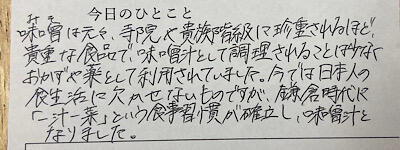 今日のひとこと
みそ
味噌は元々、寺院や貴族階級に珍重されるほど、
貴重な食品で、味噌汁として調理されることは少なく
おかずや薬として利用されていました。今では日本人の
食生活に欠かせないものですが、鎌倉時代に
「一汁一菜」という食事習慣が確立し、味噌汁と
なりました。